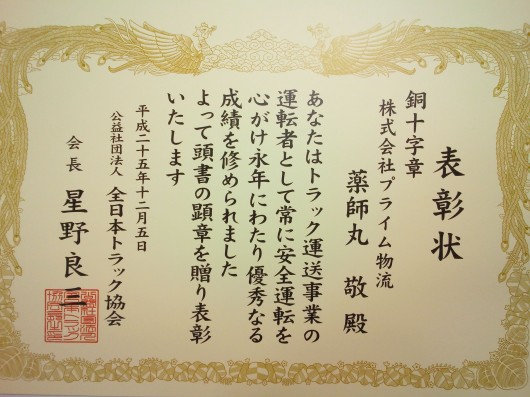 表彰状
銅十字章
株式会社プライム物流
薬師丸 敬 殿
あなたはトラック運送事業の
運転者として常に安全運転を
心がけ永年にわたり優秀なる
成績を修められました
よって頭書の顕章を贈り表彰
いたします
平成二十五年十二月五日
公益社団法人 全日本トラック協会
会長 星野良三